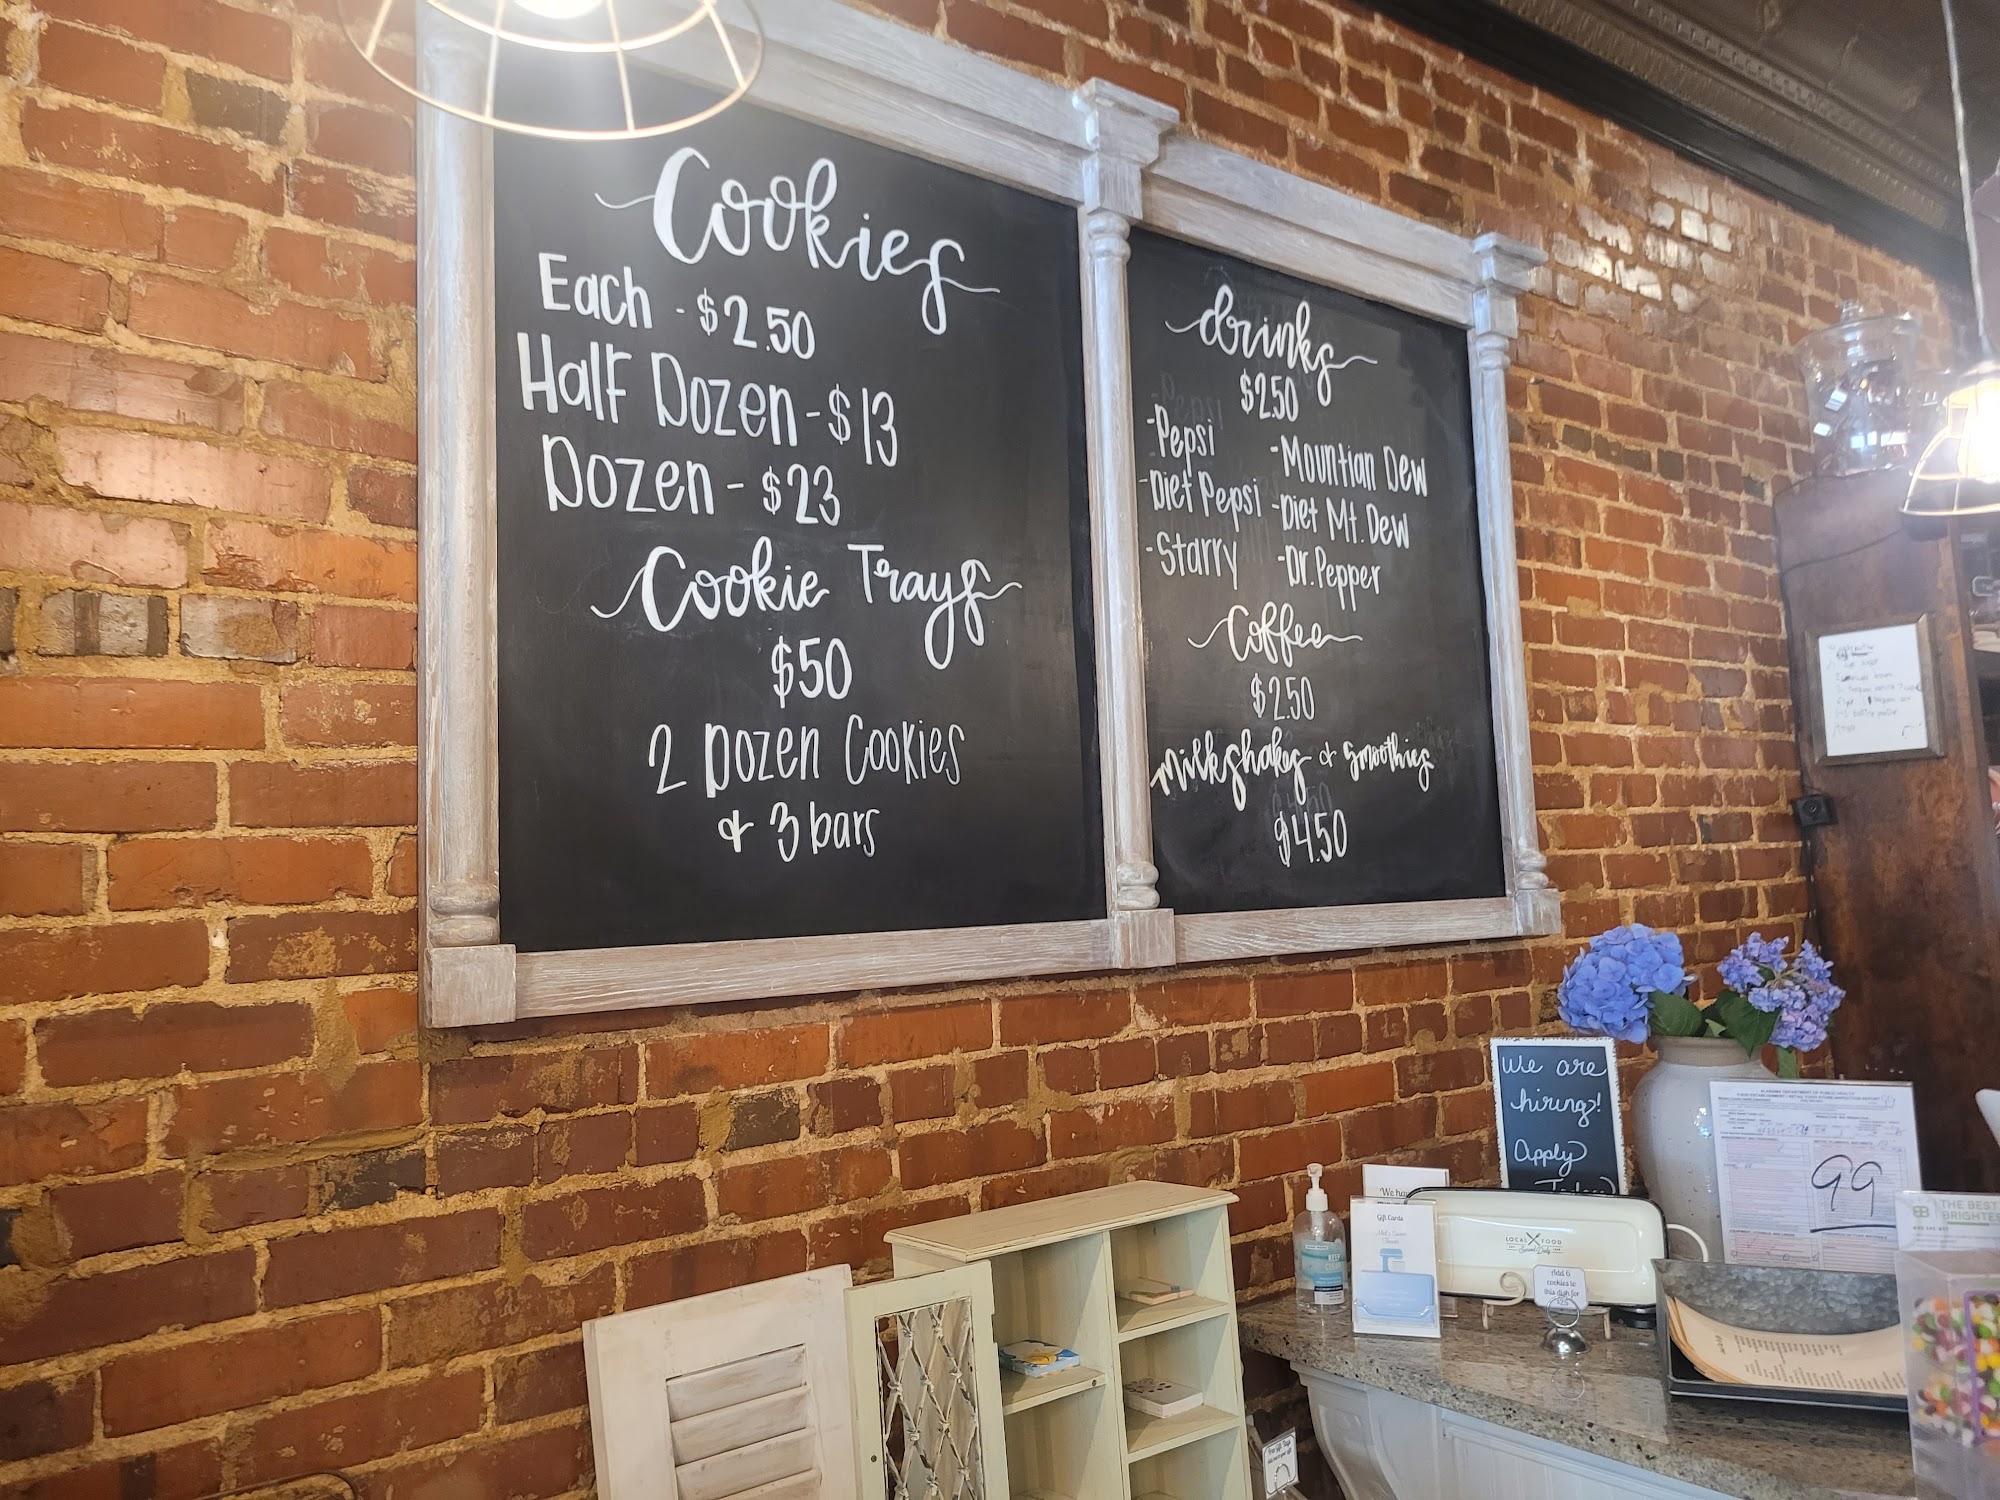 Cookies
Each - $2.50
Half Dozen - $13
Dozen - $23
Cookie Trays
$50
2 Dozen Cookies
& 3 bars
drinks
$2.50
-Pepsi
-Diet Pepsi
-Starry
-Mountian Dew
-Diet Mt. Dew
-Dr. Pepper
Coffee
$2.50
Milkshakes & Smoothies
$4.50
We are
hiring!
Apply
Today
ALABAMA DEPARTMENT OF PUBLIC HEALTH
99
We ha
Gift Cards
LOCAL FOOD
Served Daily
Add 6
cookies to
this dish for
THE BEST
BRIGHTES